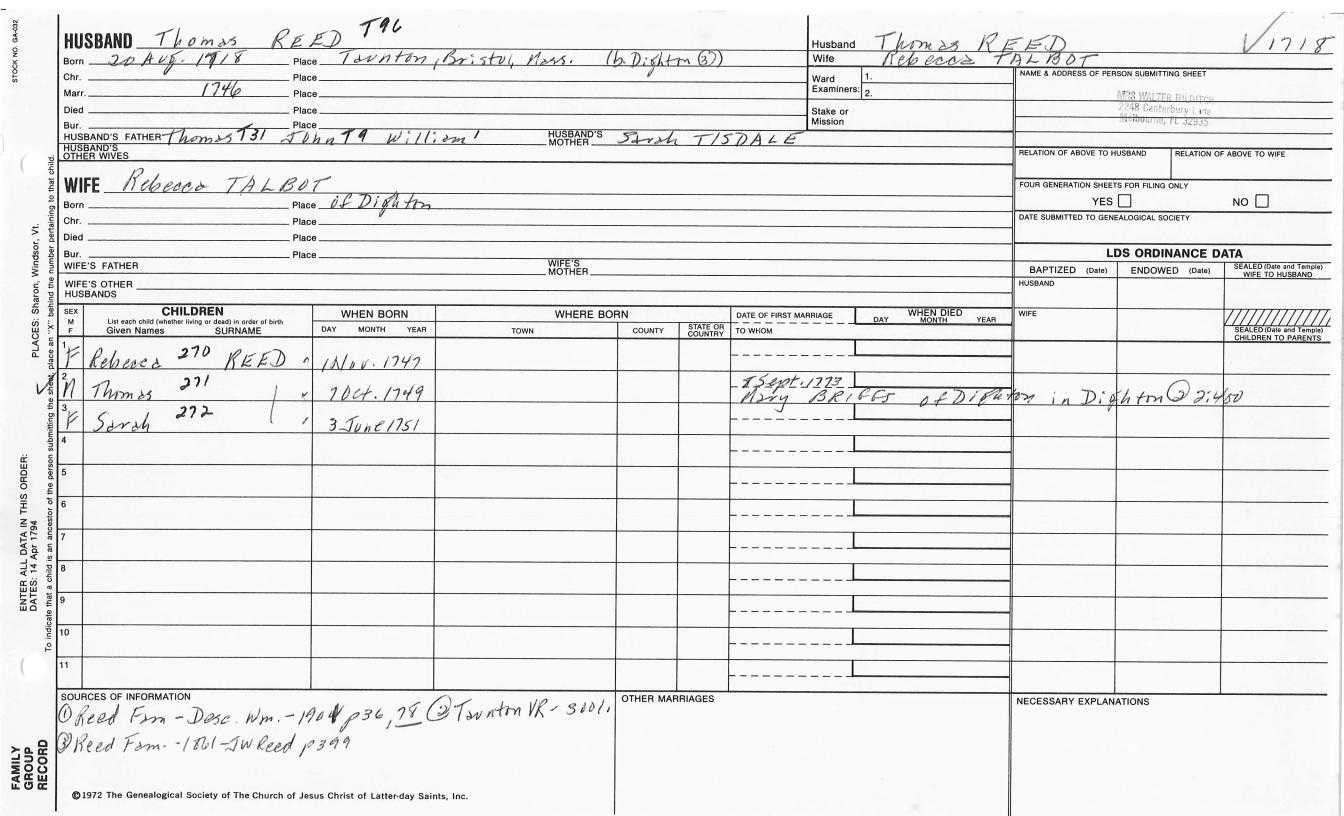 STOCK NO. GA-032
HUSBAND Thomas REED T96
Born 20 Aug. 1718 Place Taunton, Bristol, Mass. (b. Dighton ③)
Chr. Place
Marr. 1746 Place
Died Place
Bur. Place
HUSBAND'S FATHER Thomas T31 John T9 William 1 HUSBAND'S MOTHER Sarah TISDALE
HUSBAND'S OTHER WIVES
WIFE Rebecca TALBOT
Born Place of Dighton
Chr. Place
Died Place
Bur. Place
WIFE'S FATHER WIFE'S MOTHER
WIFE'S OTHER HUSBANDS
Husband Thomas REED √1718
Wife Rebecca TALBOT
Ward Examiners: 1.
2.
Stake or Mission
NAME & ADDRESS OF PERSON SUBMITTING SHEET
MRS WALTER
2248 Canterbury Lane
Melbourne, FL 32935
RELATION OF ABOVE TO HUSBAND RELATION OF ABOVE TO WIFE
FOUR GENERATION SHEETS FOR FILING ONLY
YES NO
DATE SUBMITTED TO GENEALOGICAL SOCIETY
LDS ORDINANCE DATA
BAPTIZED (Date) ENDOWED (Date) SEALED (Date and Temple) WIFE TO HUSBAND
HUSBAND
WIFE
SEALED (Date and Temple) CHILDREN TO PARENTS
SEX M F
CHILDREN
List each child (whether living or dead) in order of birth
Given Names SURNAME
WHEN BORN
DAY MONTH YEAR
WHERE BORN
TOWN COUNTY STATE OR COUNTRY
DATE OF FIRST MARRIAGE
TO WHOM
WHEN DIED
DAY MONTH YEAR
1 F Rebecca 270 REED 1 Nov. 1747
2 M Thomas 271 " 7 Oct. 1749 8 Sept. 1773
Mary BRIGGS of Dighton in Dighton ② 2:400
3 F Sarah 272 3 June 1751
4
5
6
7
8
9
10
11
SOURCES OF INFORMATION
① Reed Fam - Desc. Wm. - 1901 p36, 78 ② Taunton VR -
③ Reed Fam. - 1861 - JW Reed p399
OTHER MARRIAGES
NECESSARY EXPLANATIONS
©1972 The Genealogical Society of The Church of Jesus Christ of Latter-day Saints, Inc.
PLACES: Sharon, Windsor, Vt.
ENTER ALL DATA IN THIS ORDER:
DATES: 14 Apr 1794
To indicate that a child is an ancestor of the person submitting the sheet, place an "X" behind the number pertaining to that child.
FAMILY GROUP RECORD